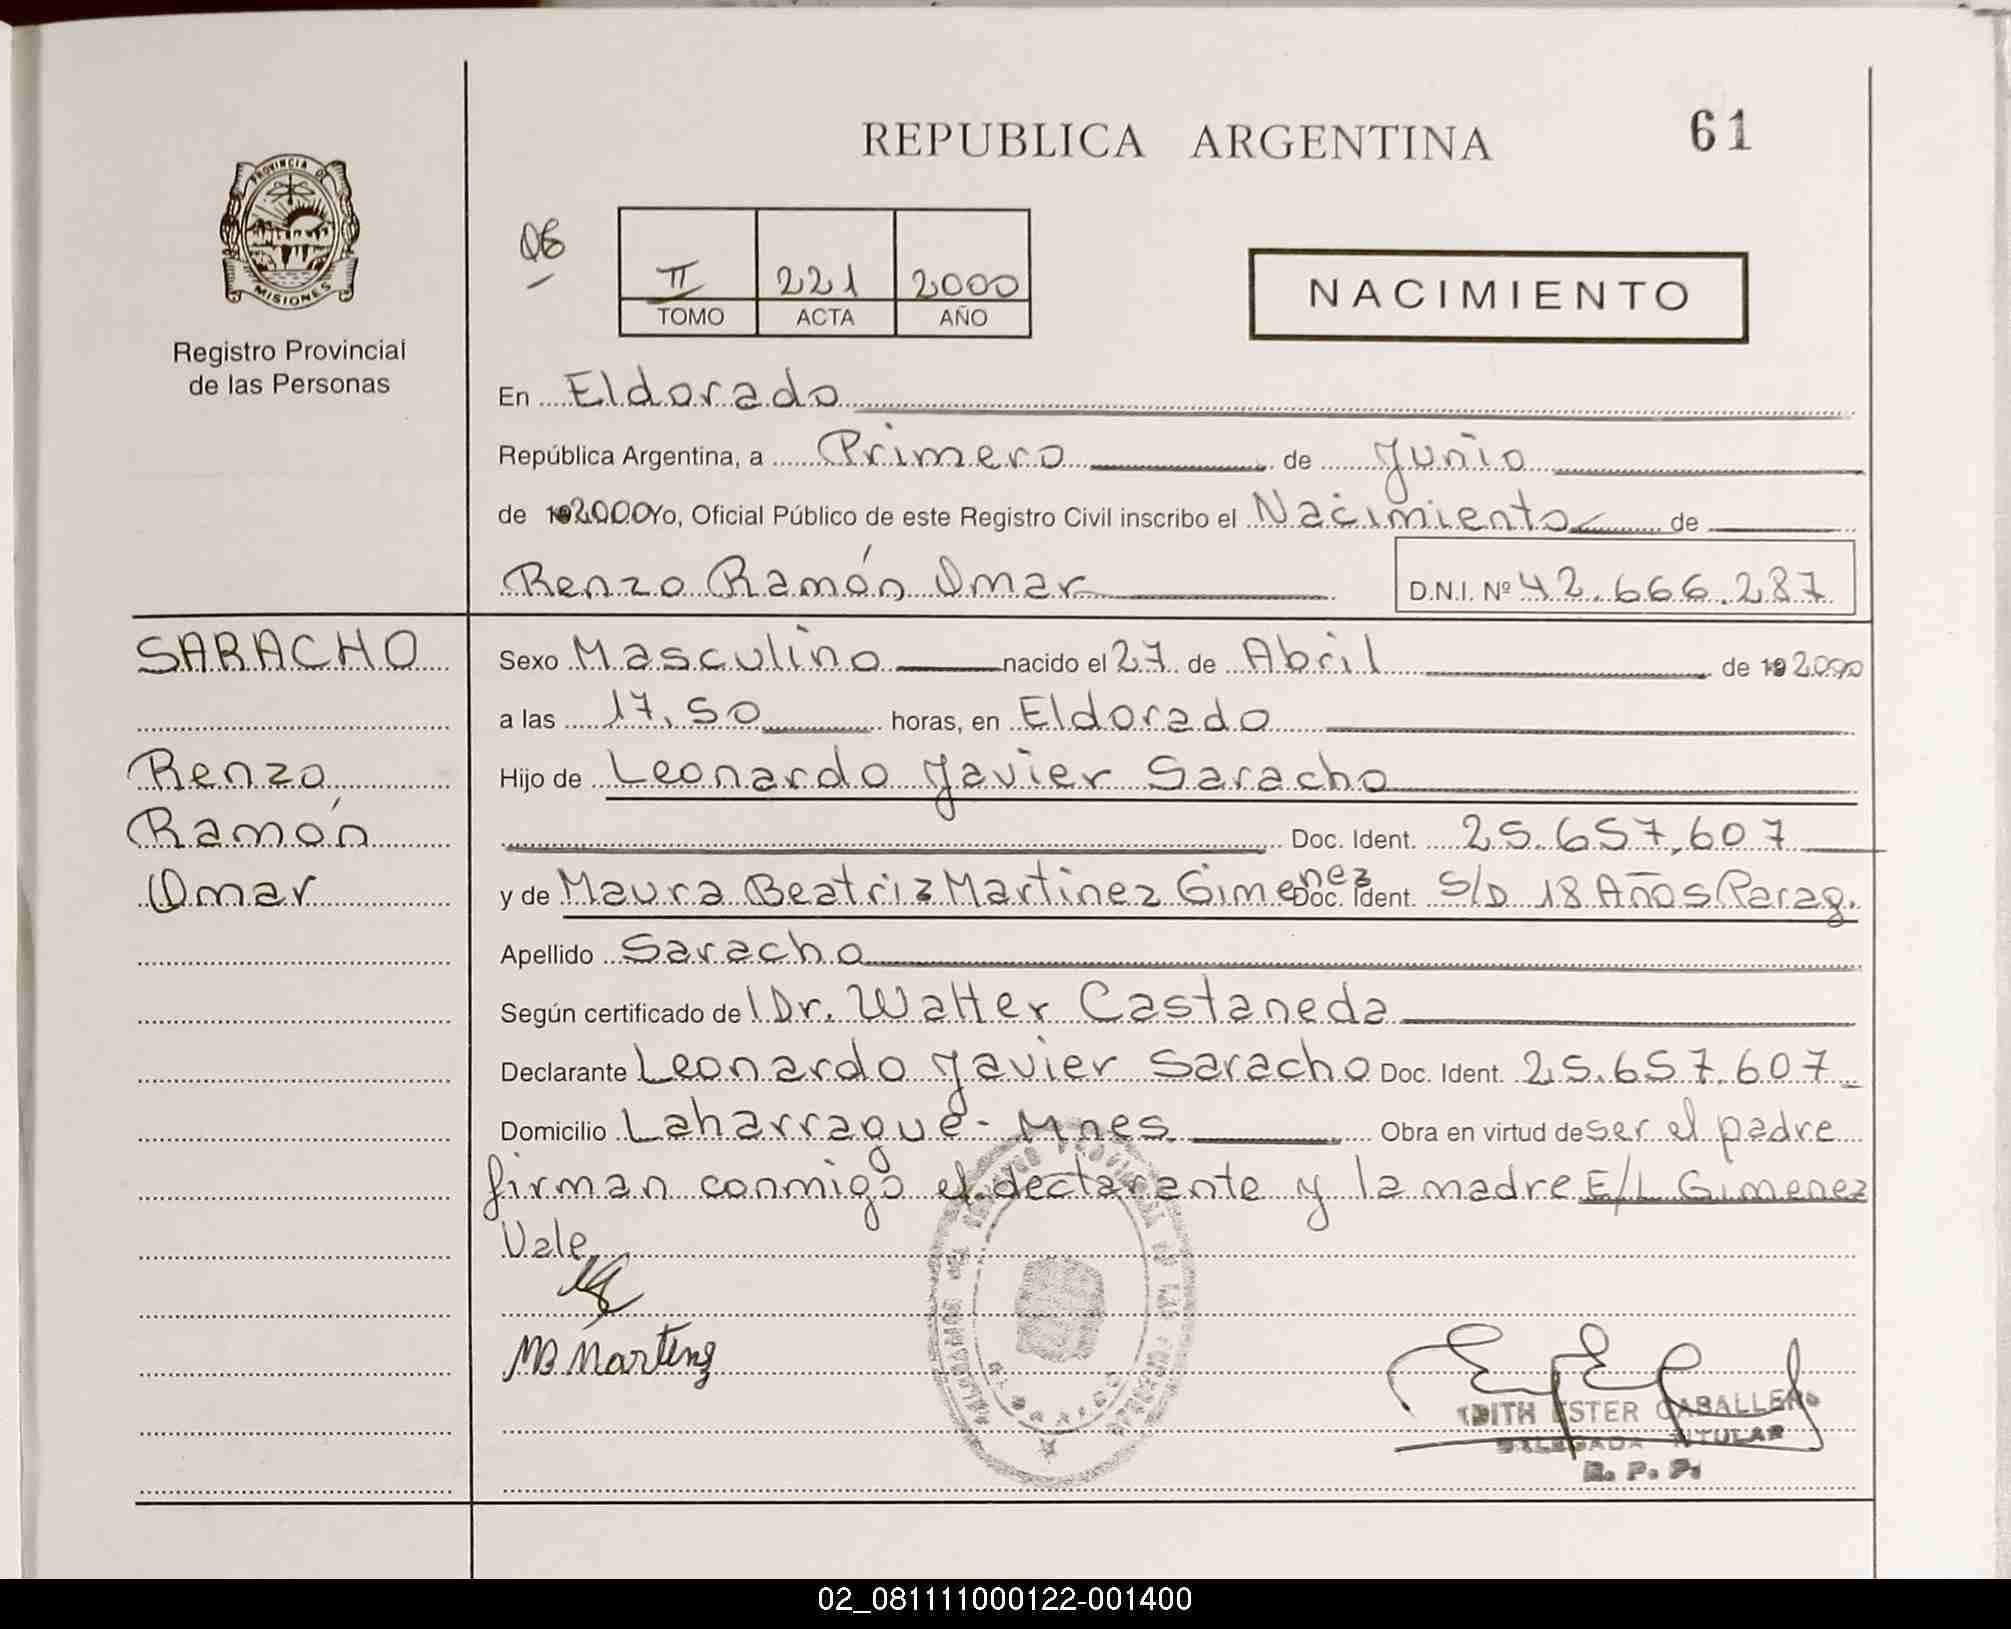 REPUBLICA ARGENTINA
61
PROVINCIA DE
MISIONES
Registro Provincial
de las Personas
II 221 2000
TOMO ACTA AÑO
NACIMIENTO
En Eldorado
República Argentina, a Primero de Junio
de 192000 Yo, Oficial Público de este Registro Civil inscribo el Nacimiento de
Renzo Ramón Omar D.N.I. Nº 42.666.287
SARACHO
Renzo
Ramón
Omar
Sexo Masculino nacido el 27 de Abril de 19 2000
a las 17,50 horas, en Eldorado
Hijo de Leonardo Javier Saracho
Doc. Ident. 25.657.607
y de Maura Beatriz Martinez Gimenez Doc. Ident. S/D 18 Años Parag.
Apellido Saracho
Según certificado de l Dr. Walter Castaneda
Declarante Leonardo Javier Saracho Doc. Ident. 25.657.607
Domicilio Laharrague - Mnes Obra en virtud de ser el padre
firman conmigo el declarante y la madre E/L Gimenez
Vale
MB Martinz
EDITH ESTER CABALLERO
DELEGADA TITULAR
R. P. P.
02_081111000122-001400